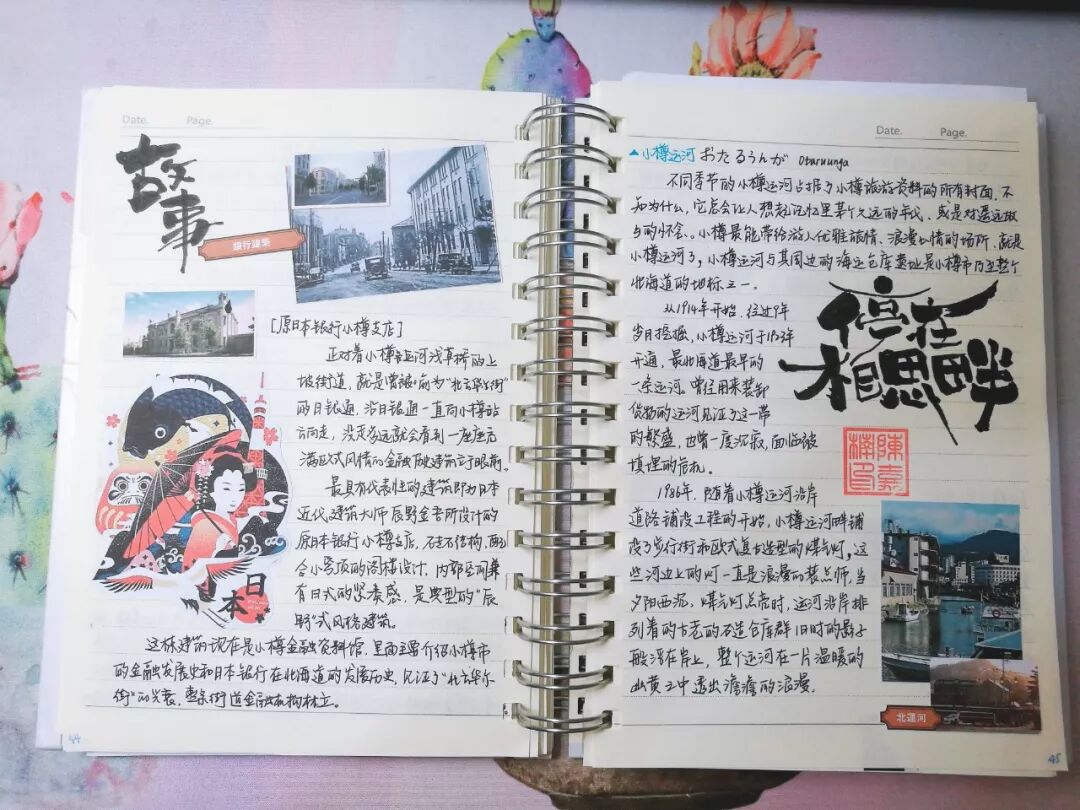 Date.
Page.
故事
銀行建築
[原日本银行小樽支店]
正对着小樽运河浅草桥的上
坡街道，就是曾被称为“北方华尔街”
的日银通，沿日银通一直向小樽站
方向走，没走多远就会看到一座座充
满欧式风情的金融历史建筑立于眼前。
最具有代表性的建筑即为日本
近代建筑大师辰野金吾所设计的
原日本银行小樽支店，石造结构，配
合小穹顶的阁楼设计，内部空间兼
有日式的紧凑感，是典型的“辰
野”式风格建筑。
这栋建筑现在是小樽金融资料馆，里面主要介绍小樽市
的金融发展史和日本银行在北海道的发展历史，见证了“北方华尔
街”的兴衰，整条街道金融机构林立。
日本
44
Date.
Page.
▲小樽运河 おたるうんが Otaruunga
不同季节的小樽运河占据了小樽旅游资料的所有封面，不
知为什么，它总会让人想起记忆里某个久远的年代，或是对遥远故
乡的怀念。小樽最能带给游人优雅旅情、浪漫心情的场所，就是
小樽运河了，小樽运河与其周边的海运仓库遗址是小樽市乃至整个
北海道的地标之一。
从1914年开始，经过9年
岁月挖掘，小樽运河于1923年
开通，最北海道最早的
一条运河，曾经用来装卸
货物的运河见证了这一带
的繁盛，也曾一度沉寂，面临被
填埋的危机。
停在
相思畔
1986年，随着小樽运河沿岸
道路铺设工程的开始，小樽运河畔铺
设了步行街和欧式复古造型的煤气灯，这
些河边上的灯一直是浪漫的装点师，当
夕阳西沉，煤气灯点亮时，运河沿岸排
列着的古老的石造仓库群旧时的影子
般浮在岸上，整个运河在一片温暖的
幽黄之中透出澹澹的浪漫。
北運河
45